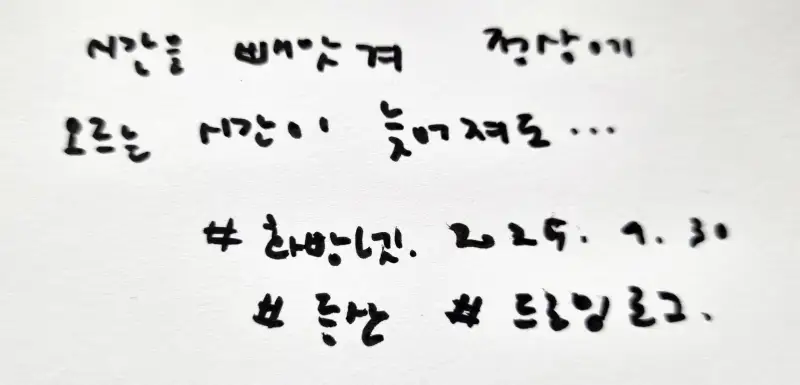 시간을 빼앗겨 정상에
오르는 시간이 늦어져도...
# 하밤깃. 2025. 9. 30
# 등산 # 드로잉로그.